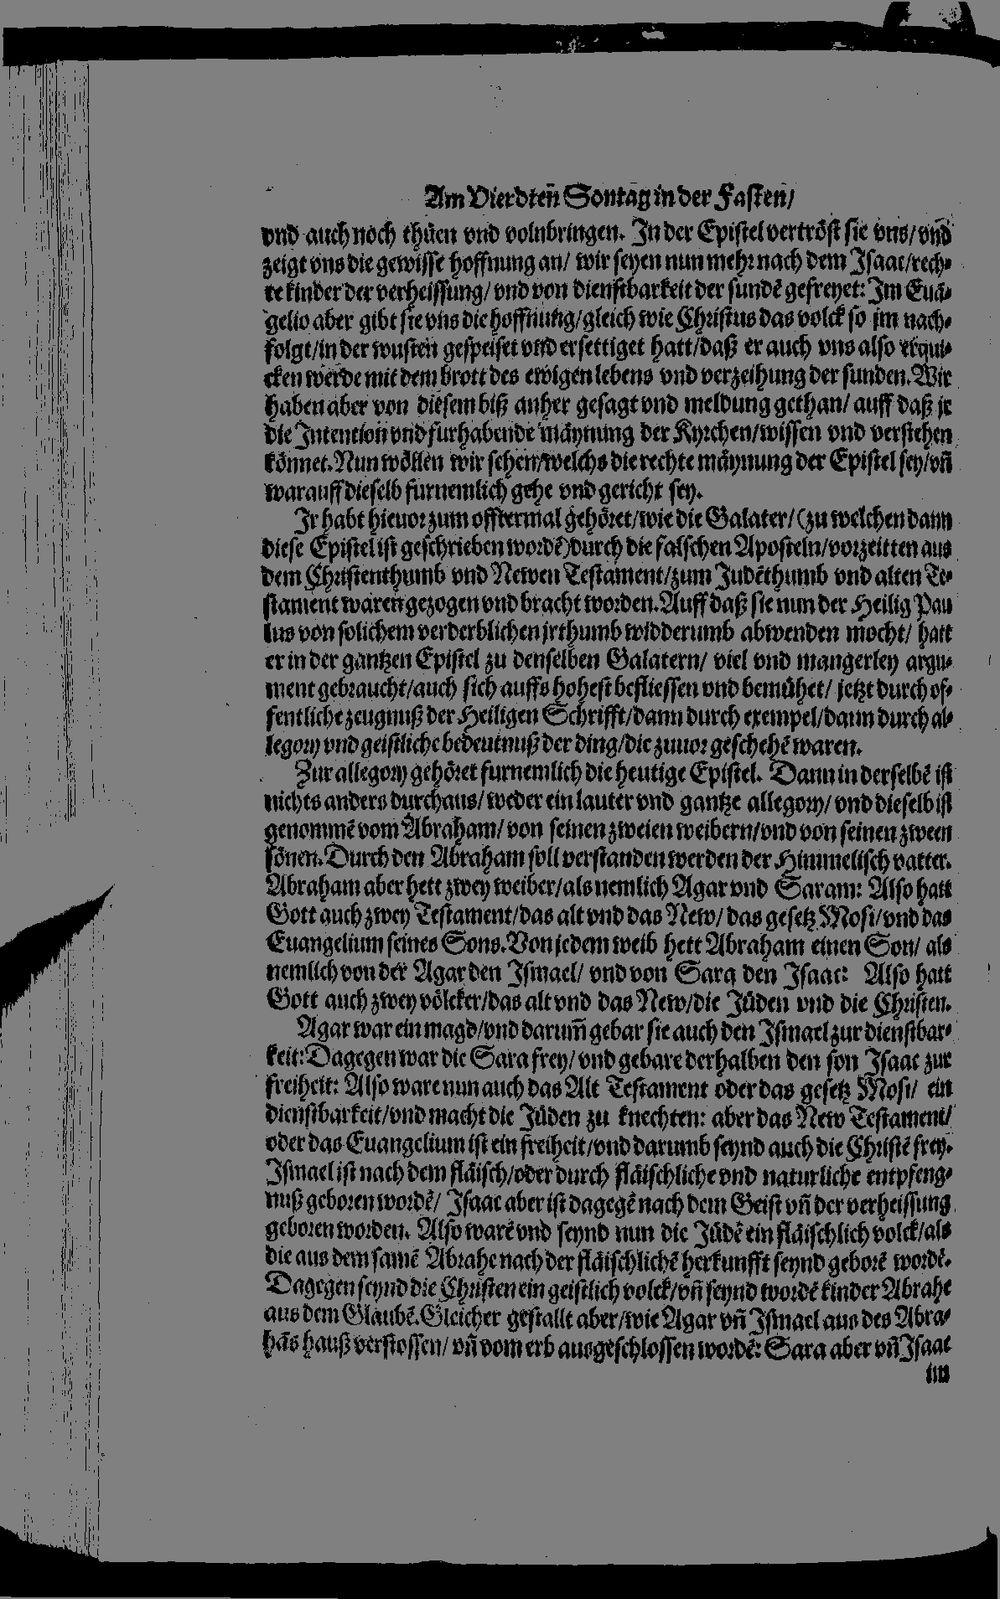 Am Vierdten̄ Sontag in der Fasten/
vnd auch noch thůen vnd volnbringen. In der Epistel vertröst sie vns/ vnd
zeigt vns die gewisse hoffnung an/ wir seyen nun mehr nach dem Isaac/ rech-
te kinder der verheissung/ vnd von dienstbarkeit der sundē gefreyet: Im Euā-
gelio aber gibt sie vns die hoffnung/ gleich wie Christus das volck so im nach-
folgt/ in der wusten gespeiset vnd ersettiget hatt/ daß er auch vns also erqui-
cken werde mit dem brott des ewigen lebens vnd verzeihung der sunden. Wir
haben aber von diesem biß anher gesagt vnd meldung gethan/ auff daß jr
die Intention vnd furhabende mäynung der Kyrchen/ wissen vnd verstehen
könnet. Nun wöllen wir sehen/ welchs die rechte mäynung der Epistel sey/ vn̄
warauff dieselb furnemlich gehe vnd gericht sey.
Ir habt hieuor zum offtermal gehöret/ wie die Galater/ (zu welchen dann
diese Epistel ist geschrieben wordē) durch die falschen Aposteln/ vorzeitten aus
dem Christenthumb vnd Newen Testament/ zum Judēthumb vnd alten Te-
stament waren gezogen vnd bracht worden. Auff daß sie nun der Heilig Pau
lus von solichem verderblichen jrthumb widderumb abwenden mocht/ hatt
er in der gantzen Epistel zu denselben Galatern/ viel vnd mangerley argu-
ment gebraucht/ auch sich auffs hohest befliessen vnd bemühet/ jetzt durch of-
fentliche zeugnuß der Heiligen Schrifft/ dann durch exempel/ dann durch al-
legory vnd geistliche bedeutnuß der ding/ die zuuor geschehē waren.
Zur allegory gehöret furnemlich die heutige Epistel. Dann in derselbē ist
nichts anders durchaus/ weder ein lauter vnd gantze allegory/ vnd dieselb ist
genommē vom Abraham/ von seinen zweien weibern/ vnd von seinen zween
sönen. Durch den Abraham soll verstanden werden der Himmelisch vatter.
Abraham aber hett zwey weiber/ als nemlich Agar vnd Saram: Also hatt
Gott auch zwey Testament/ das alt vnd das New/ das gesetz Mosi/ vnd das
Euangelium seines Sons. Von jedem weib hett Abraham einen Son/ als
nemlich von der Agar den Ismael/ vnd von Sara den Isaac: Also hatt
Gott auch zwey völcker/ das alt vnd das New/ die Jüden vnd die Christen.
Agar war ein magd/ vnd darum̄ gebar sie auch den Ismael zur dienstbar-
keit: Dagegen war die Sara frey/ vnd gebare derhalben den son Isaac zur
freiheit: Also ware nun auch das Alt Testament oder das gesetz Mosi/ ein
dienstbarkeit/ vnd macht die Jüden zu knechten: aber das New Testament/
oder das Euangelium ist ein freiheit/ vnd darumb seynd auch die Christē frey.
Ismael ist nach dem fläisch/ oder durch fläischliche vnd naturliche entpfeng-
nuß geboren wordē/ Isaac aber ist dagegē nach dem Geist vn̄ der verheissung
geboren worden. Also warē vnd seynd nun die Jüdē ein fläischlich volck/ als
die aus dem samē Abrahe nach der fläischlichē herkunfft seynd geborē wordē.
Dagegen seynd die Christen ein geistlich volck/ vn̄ seynd wordē kinder Abrahe
aus dem Glaubē. Gleicher gestallt aber/ wie Agar vn̄ Ismael aus des Abra-
hās hauß verstossen/ vn̄ vom erb ausgeschlossen wordē: Sara aber vn̄ Isaac
im